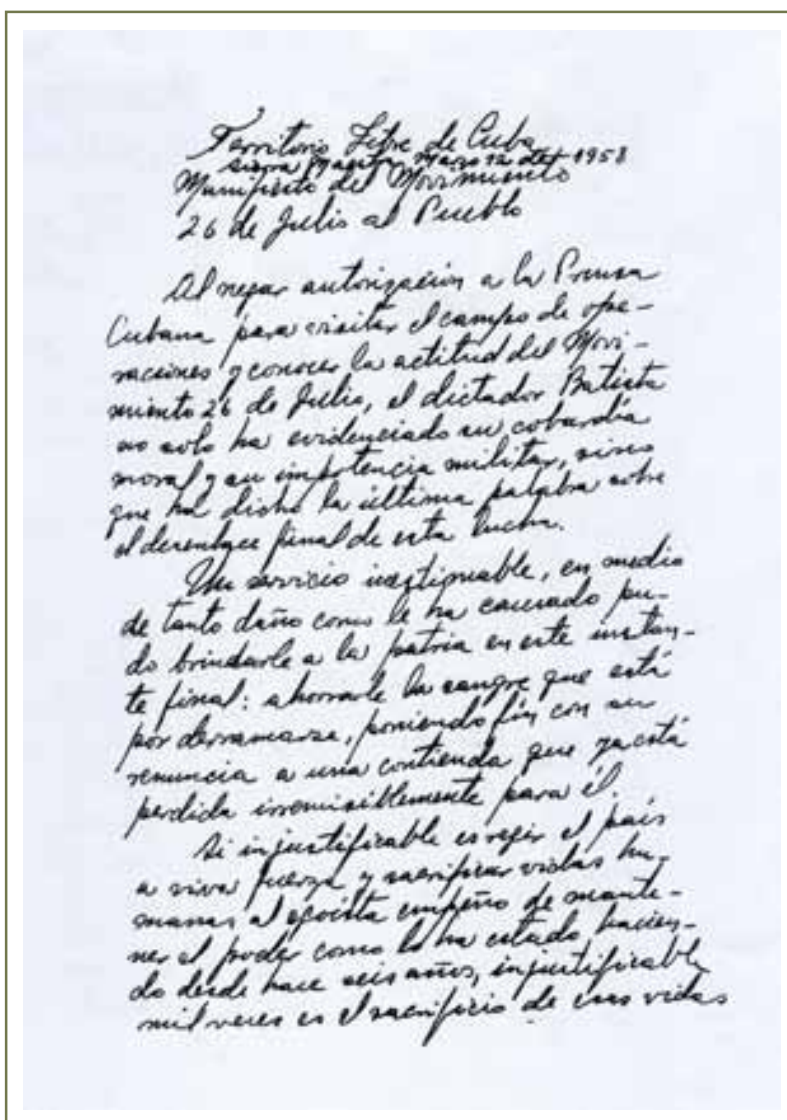 Territorio Libre de Cuba
Sierra Maestra Marzo 12 de 1958
Manifiesto del Movimiento
26 de Julio al Pueblo
Al negar autorización a la Prensa
Cubana para visitar el campo de ope-
raciones y conocer la actitud del Movi-
miento 26 de Julio, el dictador Batista
no solo ha evidenciado su cobardía
moral y su impotencia militar, sino
que ha dicho la última palabra sobre
el desenlace final de esta lucha.
Un servicio inestimable, en medio
de tanto daño como le ha causado pu-
do brindarle a la patria en este instan-
te final: ahorrarle la sangre que está
por derramarse, poniendo fin con su
renuncia a una contienda que ya está
perdida irremisiblemente para él.
Si injustificable es regir el país
a viva fuerza y sacrificar vidas hu-
manas al egoísta empeño de mante-
ner el poder como lo ha estado hacien-
do desde hace seis años, injustificable
mil veces es el sacrificio de esas vidas